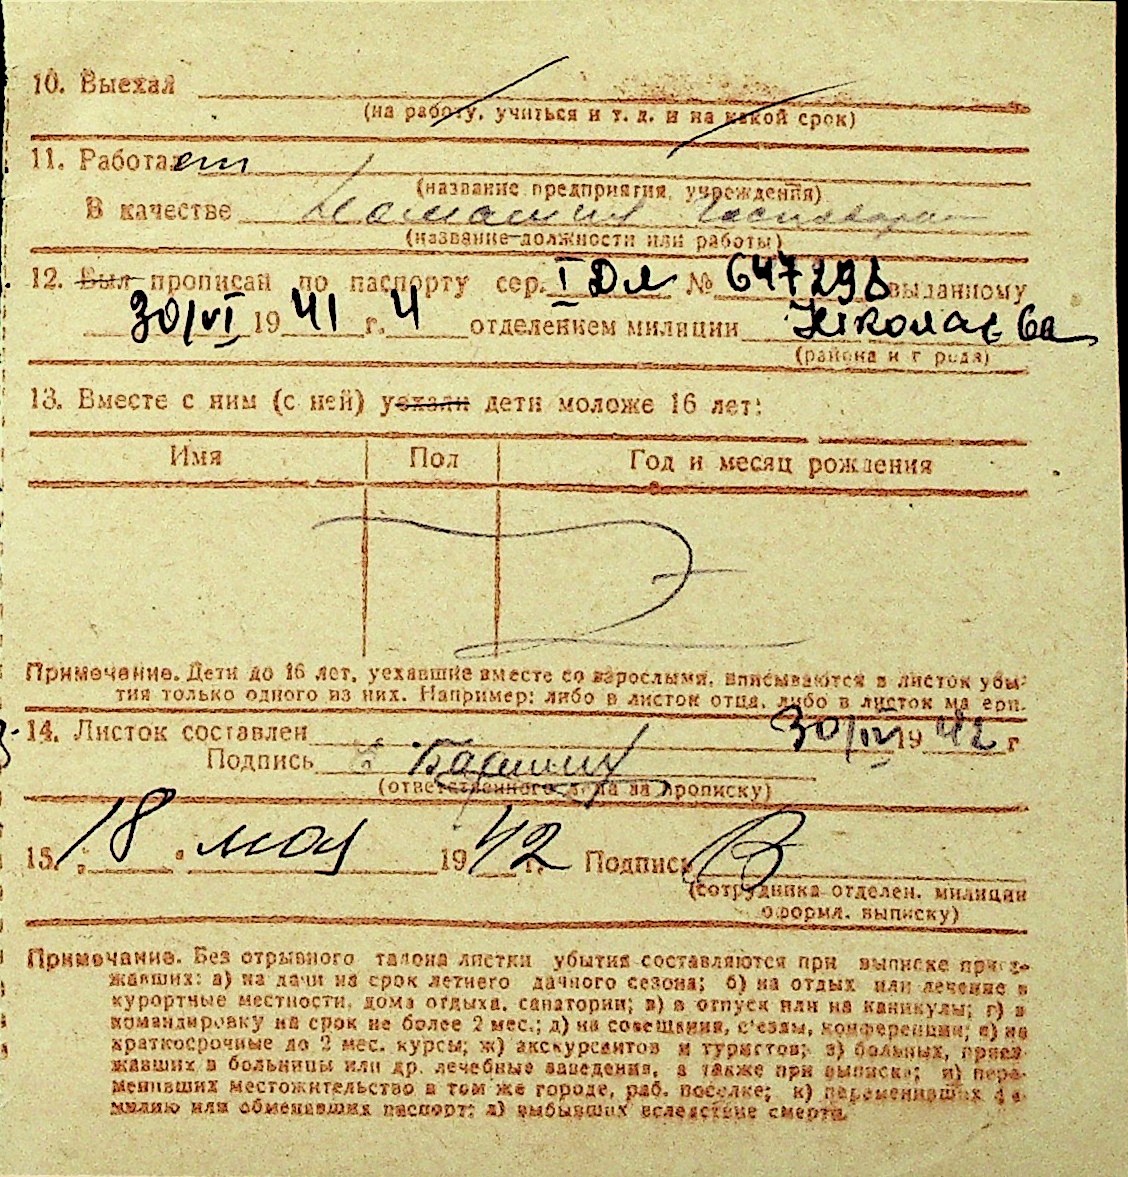 10. Выехал
(на работу, учиться и т. д. и на какой срок)
11. Работает
(название предприятия, учреждения)
В качестве
(название должности или работы)
12. Был прописан по паспорту сер. I ДЛ № 647293 выданному
30/VI 1941 г. 4 отделением милиции Николаева
(района и города)
13. Вместе с ним (с ней) уехали дети моложе 16 лет:
Имя Пол Год и месяц рождения
Z
Примечание. Дети до 16 лет, уехавшие вместе со взрослыми, вписываются в листок убы-
тия только одного из них. Например: либо в листок отца, либо в листок матери.
14. Листок составлен 30/IV 1942 г
Подпись
(ответственного лица за прописку)
15. 18 мая 1942 г. Подпись
(сотрудника отделен. милиции
оформл. выписку)
Примечание. Без отрывного талона листки убытия составляются при выписке приез-
жавших: а) на дачи на срок летнего дачного сезона; б) на отдых или лечение в
курортные местности, дома отдыха, санатории; в) в отпуск или на каникулы; г) в
командировку на срок не более 2 мес.; д) на совещания, с'езды, конференции; е) на
краткосрочные до 2 мес. курсы; ж) экскурсантов и туристов; з) больных, приез-
жавших в больницы или др. лечебные заведения, а также при выписке; и) пере-
менивших местожительство в том же городе, раб. поселке; к) переменивших фа-
милию или обменявших паспорт; л) выбывших вследствие смерти.